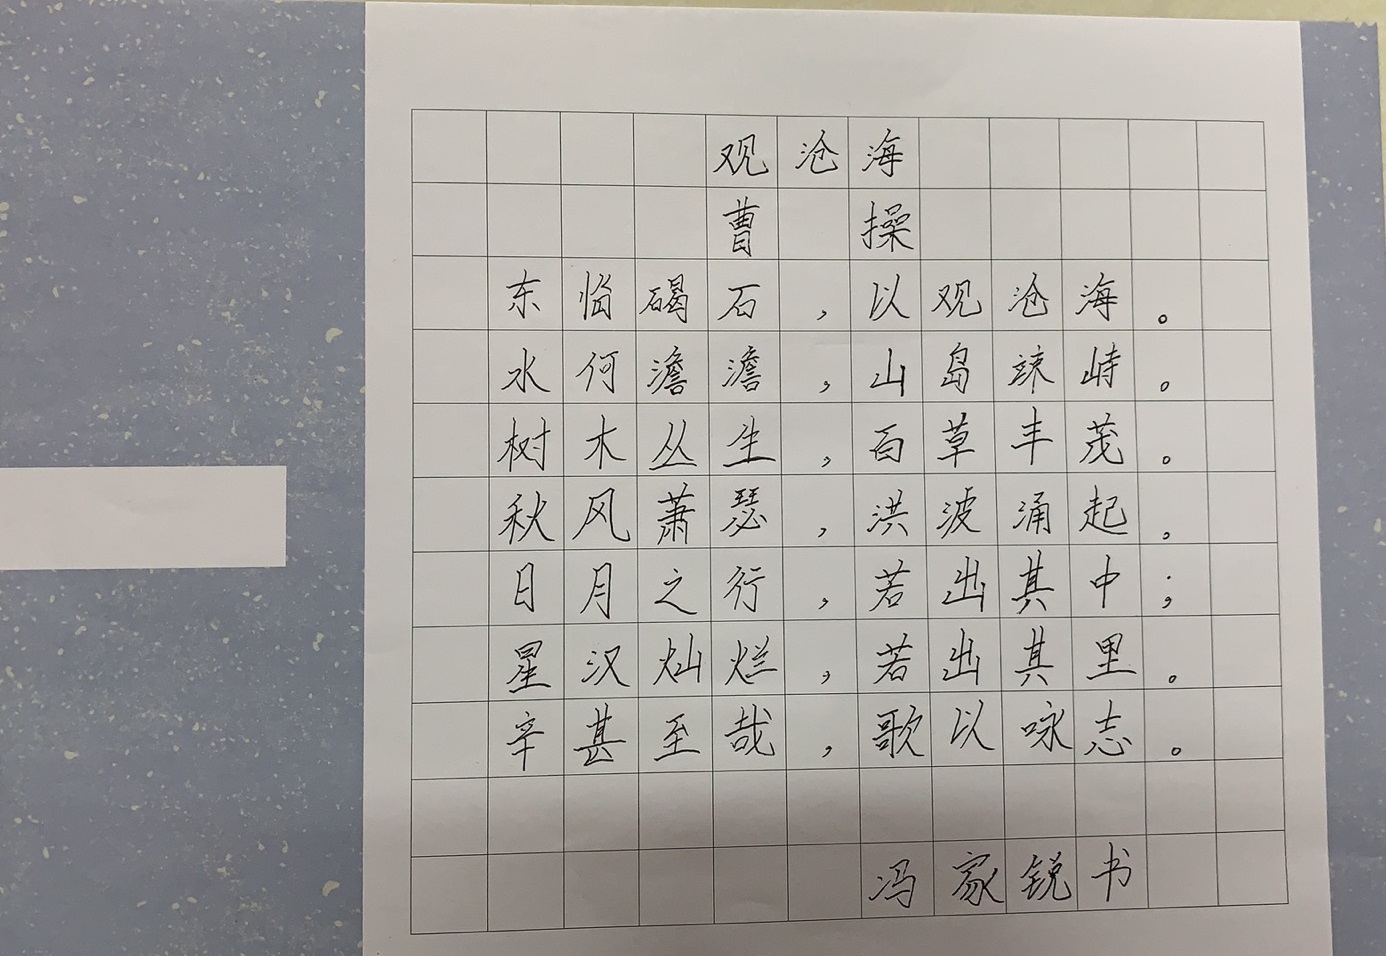 观沧海
曹操
东临碣石，以观沧海。
水何澹澹，山岛竦峙。
树木丛生，百草丰茂。
秋风萧瑟，洪波涌起，
日月之行，若出其中；
星汉灿烂，若出其里。
辛甚至哉，歌以咏志。
冯家锐书